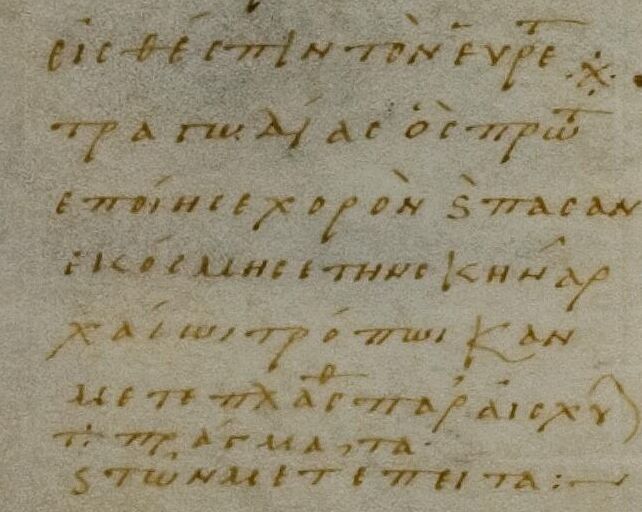 εἰς θέσπιν τὸν εὑρετ
τραγωιδίας ὃς πρῶτ
ἐποίησε χορὸν ϛ̀ πασαν
ἐκόσμησε τὴν σκηνὴν ἀρ
χαίωι τρόπωι κἂν
μετεπλάσθ παρ αἰσχύ
πράγματα
ϛ τῶν μετέπειτα: